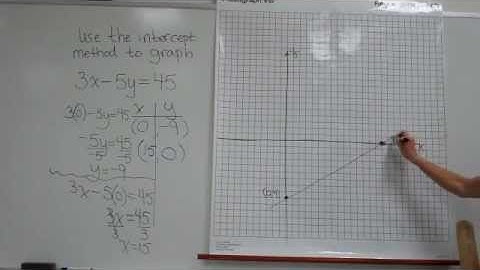 use the intercept
method to graph
3x-5y=45
3(0)-5y=45
-5y=45
-5 -5
y=-9
3x-5(0)=45
3x=45
3 3
x=15
x y
(0 -9)
(15 0)
x